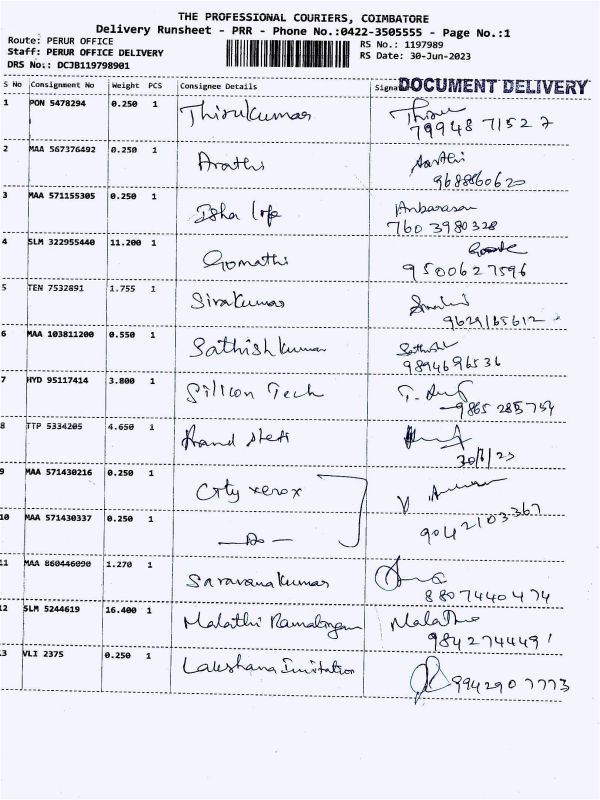 THE PROFESSIONAL COURIERS, COIMBATORE
Delivery Runsheet - PRR - Phone No.:0422-3505555 - Page No.:1
Route: PERUR OFFICE
RS No.: 1197989
Staff: PERUR OFFICE DELIVERY
RS Date: 30-Jun-2023
DRS No.: DCJB119798901
DOCUMENT DELIVERY
S No Consignment No Weight PCS Consignee Details
1 PON 5478294 0.250 1 Thirukumar Thiru
79948 71527
2 MAA 567376492 0.250 1 Arathi Aarthi
9688860620
3 MAA 571155305 0.250 1 Isha Anbarasan
7603980328
4 SLM 322955440 11.200 1 Gomathi
9500627596
5 TEN 7532891 1.755 1 Sivakumar
9629165612
6 MAA 103811200 0.550 1 Sathishkumar Sathish
9894696536
7 HYD 95117414 3.800 1 Silicon Tech
9865 285754
8 TTP 5334205 4.650 1
30/6/23
9 MAA 571430216 0.250 1 City xerox
10 MAA 571430337 0.250 1 — Do — 9042103367
11 MAA 860446090 1.270 1 Saravanakumar
8807440474
12 SLM 5244619 16.400 1 Malathi Ramalingam Malathi
9842744491
3 VLI 2375 0.250 1 Lakshana Imitation
9942907773